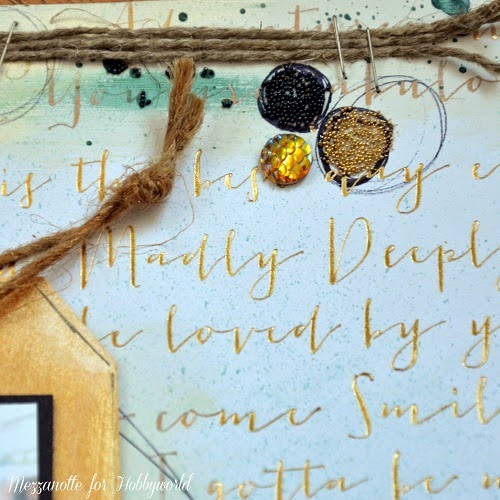 You abulo
is the bes ay e
Madly Deepl
be loved by y
come Smil
I gotta be
Mezzanotte for Hobbyworld